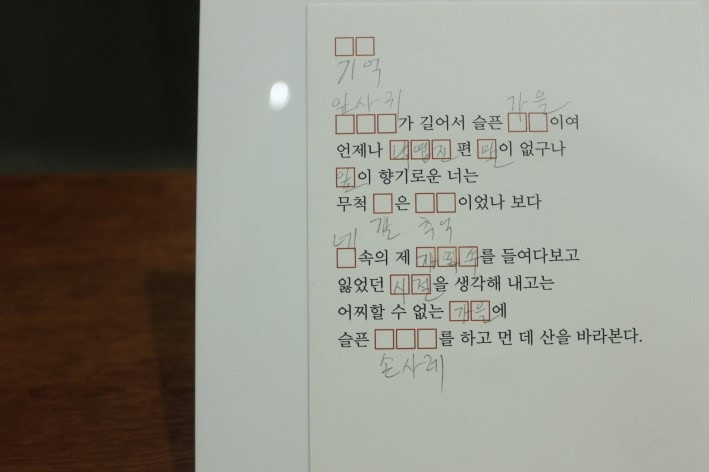 □□
기억
잎사귀 가을
□□□가 길어서 슬픈 □□이여
언제나 낙엽진 편 말이 없구나
잎이 향기로운 너는
무척 □은 □□이었나 보다
깊 추억
네
□속의 제 를 들여다보고
잃었던 시절을 생각해 내고는
어찌할 수 없는 가을에
슬픈 □□□를 하고 먼 데 산을 바라본다.
손사래